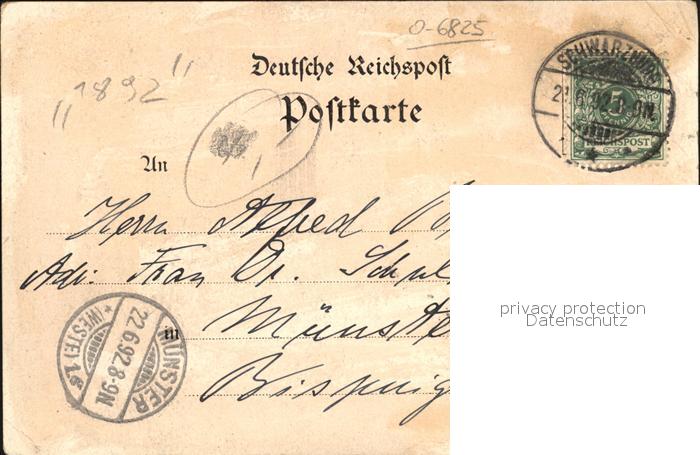 0-6825
"1892"
Deutsche Reichspost
Postkarte
SCHWARZBURG
21.6.92.8-9N.
REICHSPOST
An
Herrn Alfred
Adr. Frau Dr. Schul
in Münste
Bisping
MÜNSTER
22.6.92.8-9N.
* (WESTF.) 1.c
privacy protection
Datenschutz